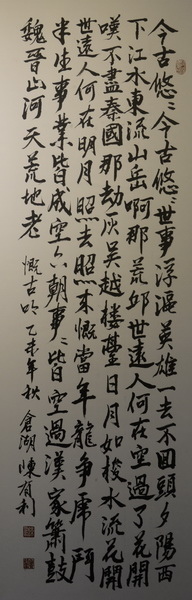 今古悠〻今古悠〻世事浮漚英雄一去不回頭夕陽西
下江水東流山岳啊那荒邱世遠人何在空過了花開
嘆不盡秦國那劫灰吳越樓臺日月如梭水流花開
世遠人何在明月照去照來慨當年龍爭虎鬥
半生事業皆成空六朝事〻皆空過漢家簫鼓
魏晉山河天荒地老 慨古吟 乙未年秋 倉湖陳有利